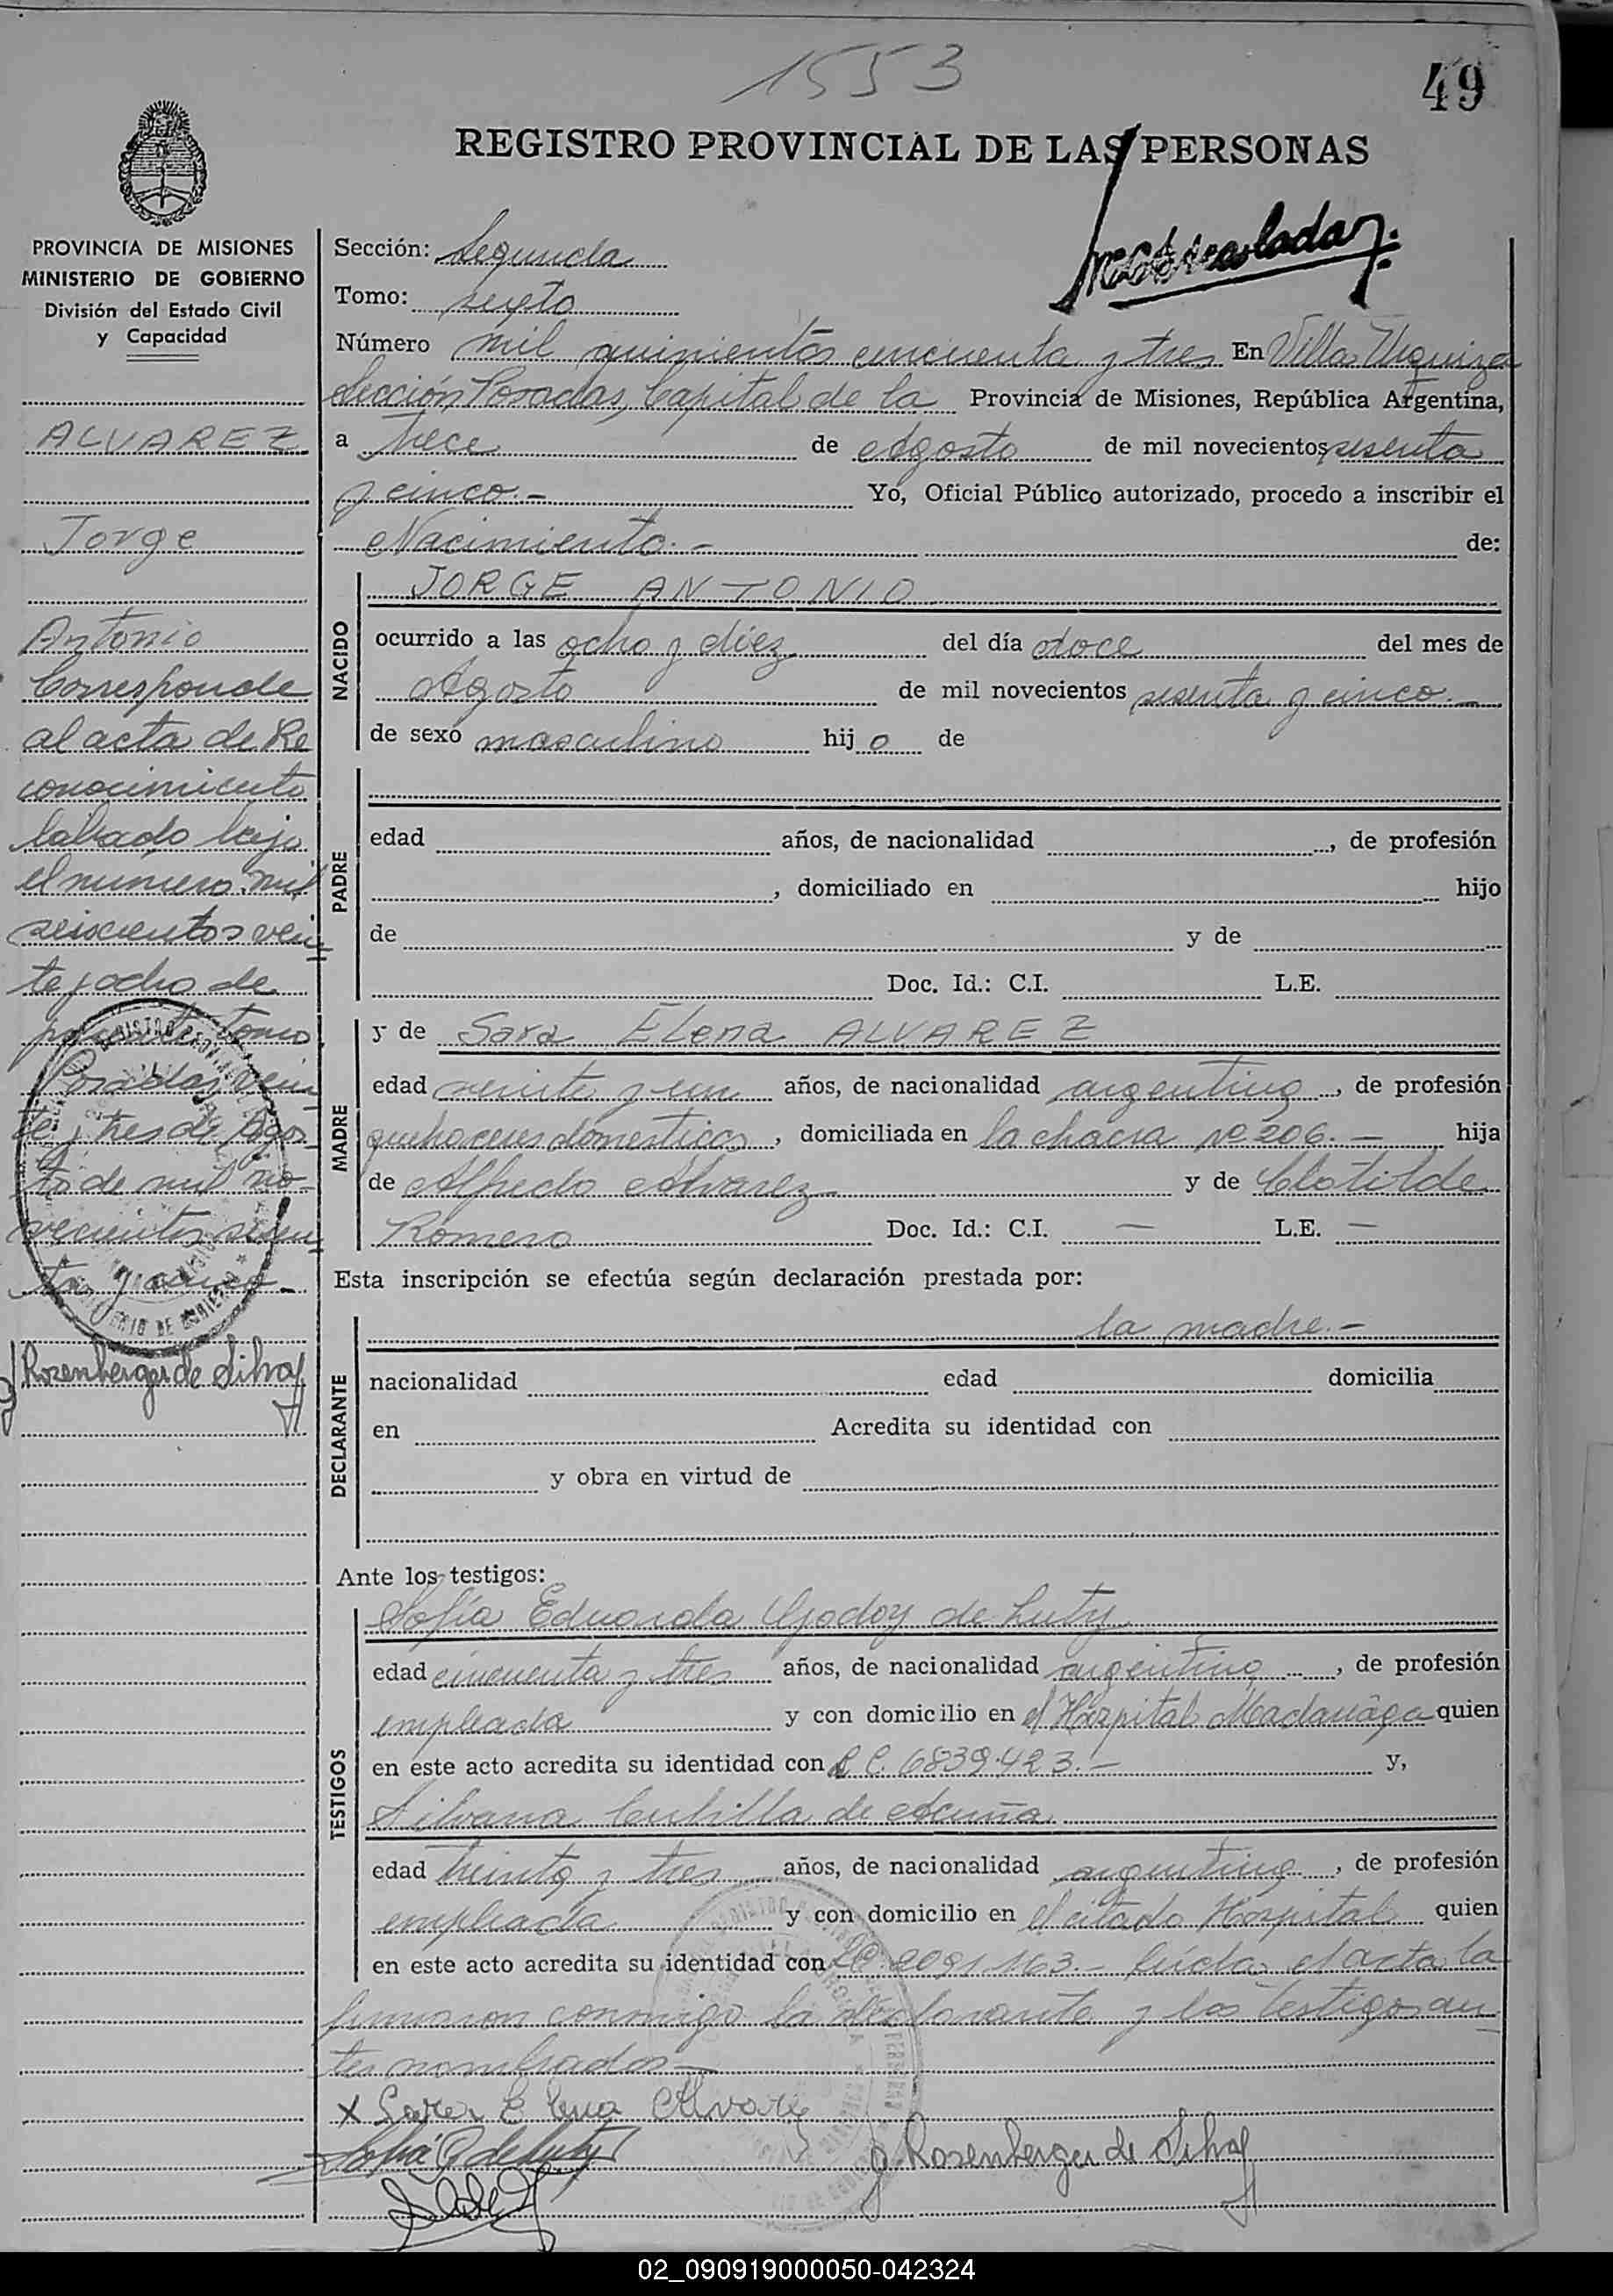 1553
49
REGISTRO PROVINCIAL DE LAS PERSONAS
PROVINCIA DE MISIONES
MINISTERIO DE GOBIERNO
División del Estado Civil
y Capacidad
ALVAREZ
Jorge
Antonio
Corresponde
al acta de Re
conocimiento
labrado bajo
el numero mil
seiscientos vein
te y ocho de
tomo
Posadas vein
te y tres de Agos
to de mil no-
vecientos sesen
ta y cinco.-
Rozenberger de Silva
Sección: Segunda
Tomo: sexto
Número mil quinientos cincuenta y tres En Villa Urquiza
Sección Posadas, Capital de la Provincia de Misiones, República Argentina,
a trece de Agosto de mil novecientos sesenta
y cinco.- Yo, Oficial Público autorizado, procedo a inscribir el
Nacimiento.- de:
NACIDO
JORGE ANTONIO
ocurrido a las ocho y diez del día doce del mes de
Agosto de mil novecientos sesenta y cinco.-
de sexo masculino hijo de
PADRE
edad años, de nacionalidad , de profesión
, domiciliado en hijo
de y de
Doc. Id.: C.I. L.E.
MADRE
y de Sara Elena ALVAREZ
edad veinte y un años, de nacionalidad argentina, de profesión
quehaceres domesticos, domiciliada en la chacra Nº 206.- hija
de Alfredo Alvarez y de Clotilde
Romero Doc. Id.: C.I. — L.E. —
Esta inscripción se efectúa según declaración prestada por:
DECLARANTE
la madre.-
nacionalidad edad domicilia
en Acredita su identidad con
y obra en virtud de
Ante los testigos:
TESTIGOS
Sofía Eduarda Godoy de Luty
edad cincuenta y tres años, de nacionalidad argentina, de profesión
empleada y con domicilio en el Hospital Madariaga quien
en este acto acredita su identidad con L C. 6839.423.- y,
Silvana de Acuña
edad treinta y tres años, de nacionalidad argentina, de profesión
empleada y con domicilio en el citado Hospital quien
en este acto acredita su identidad con LC. 2091163.- Leída el acta la
firmaron conmigo la declarante y los testigos an
tes nombrados.-
x Sara Elena Alvarez
Sofia G de Luty
Rosenberger de Silva
02_090919000050-042324